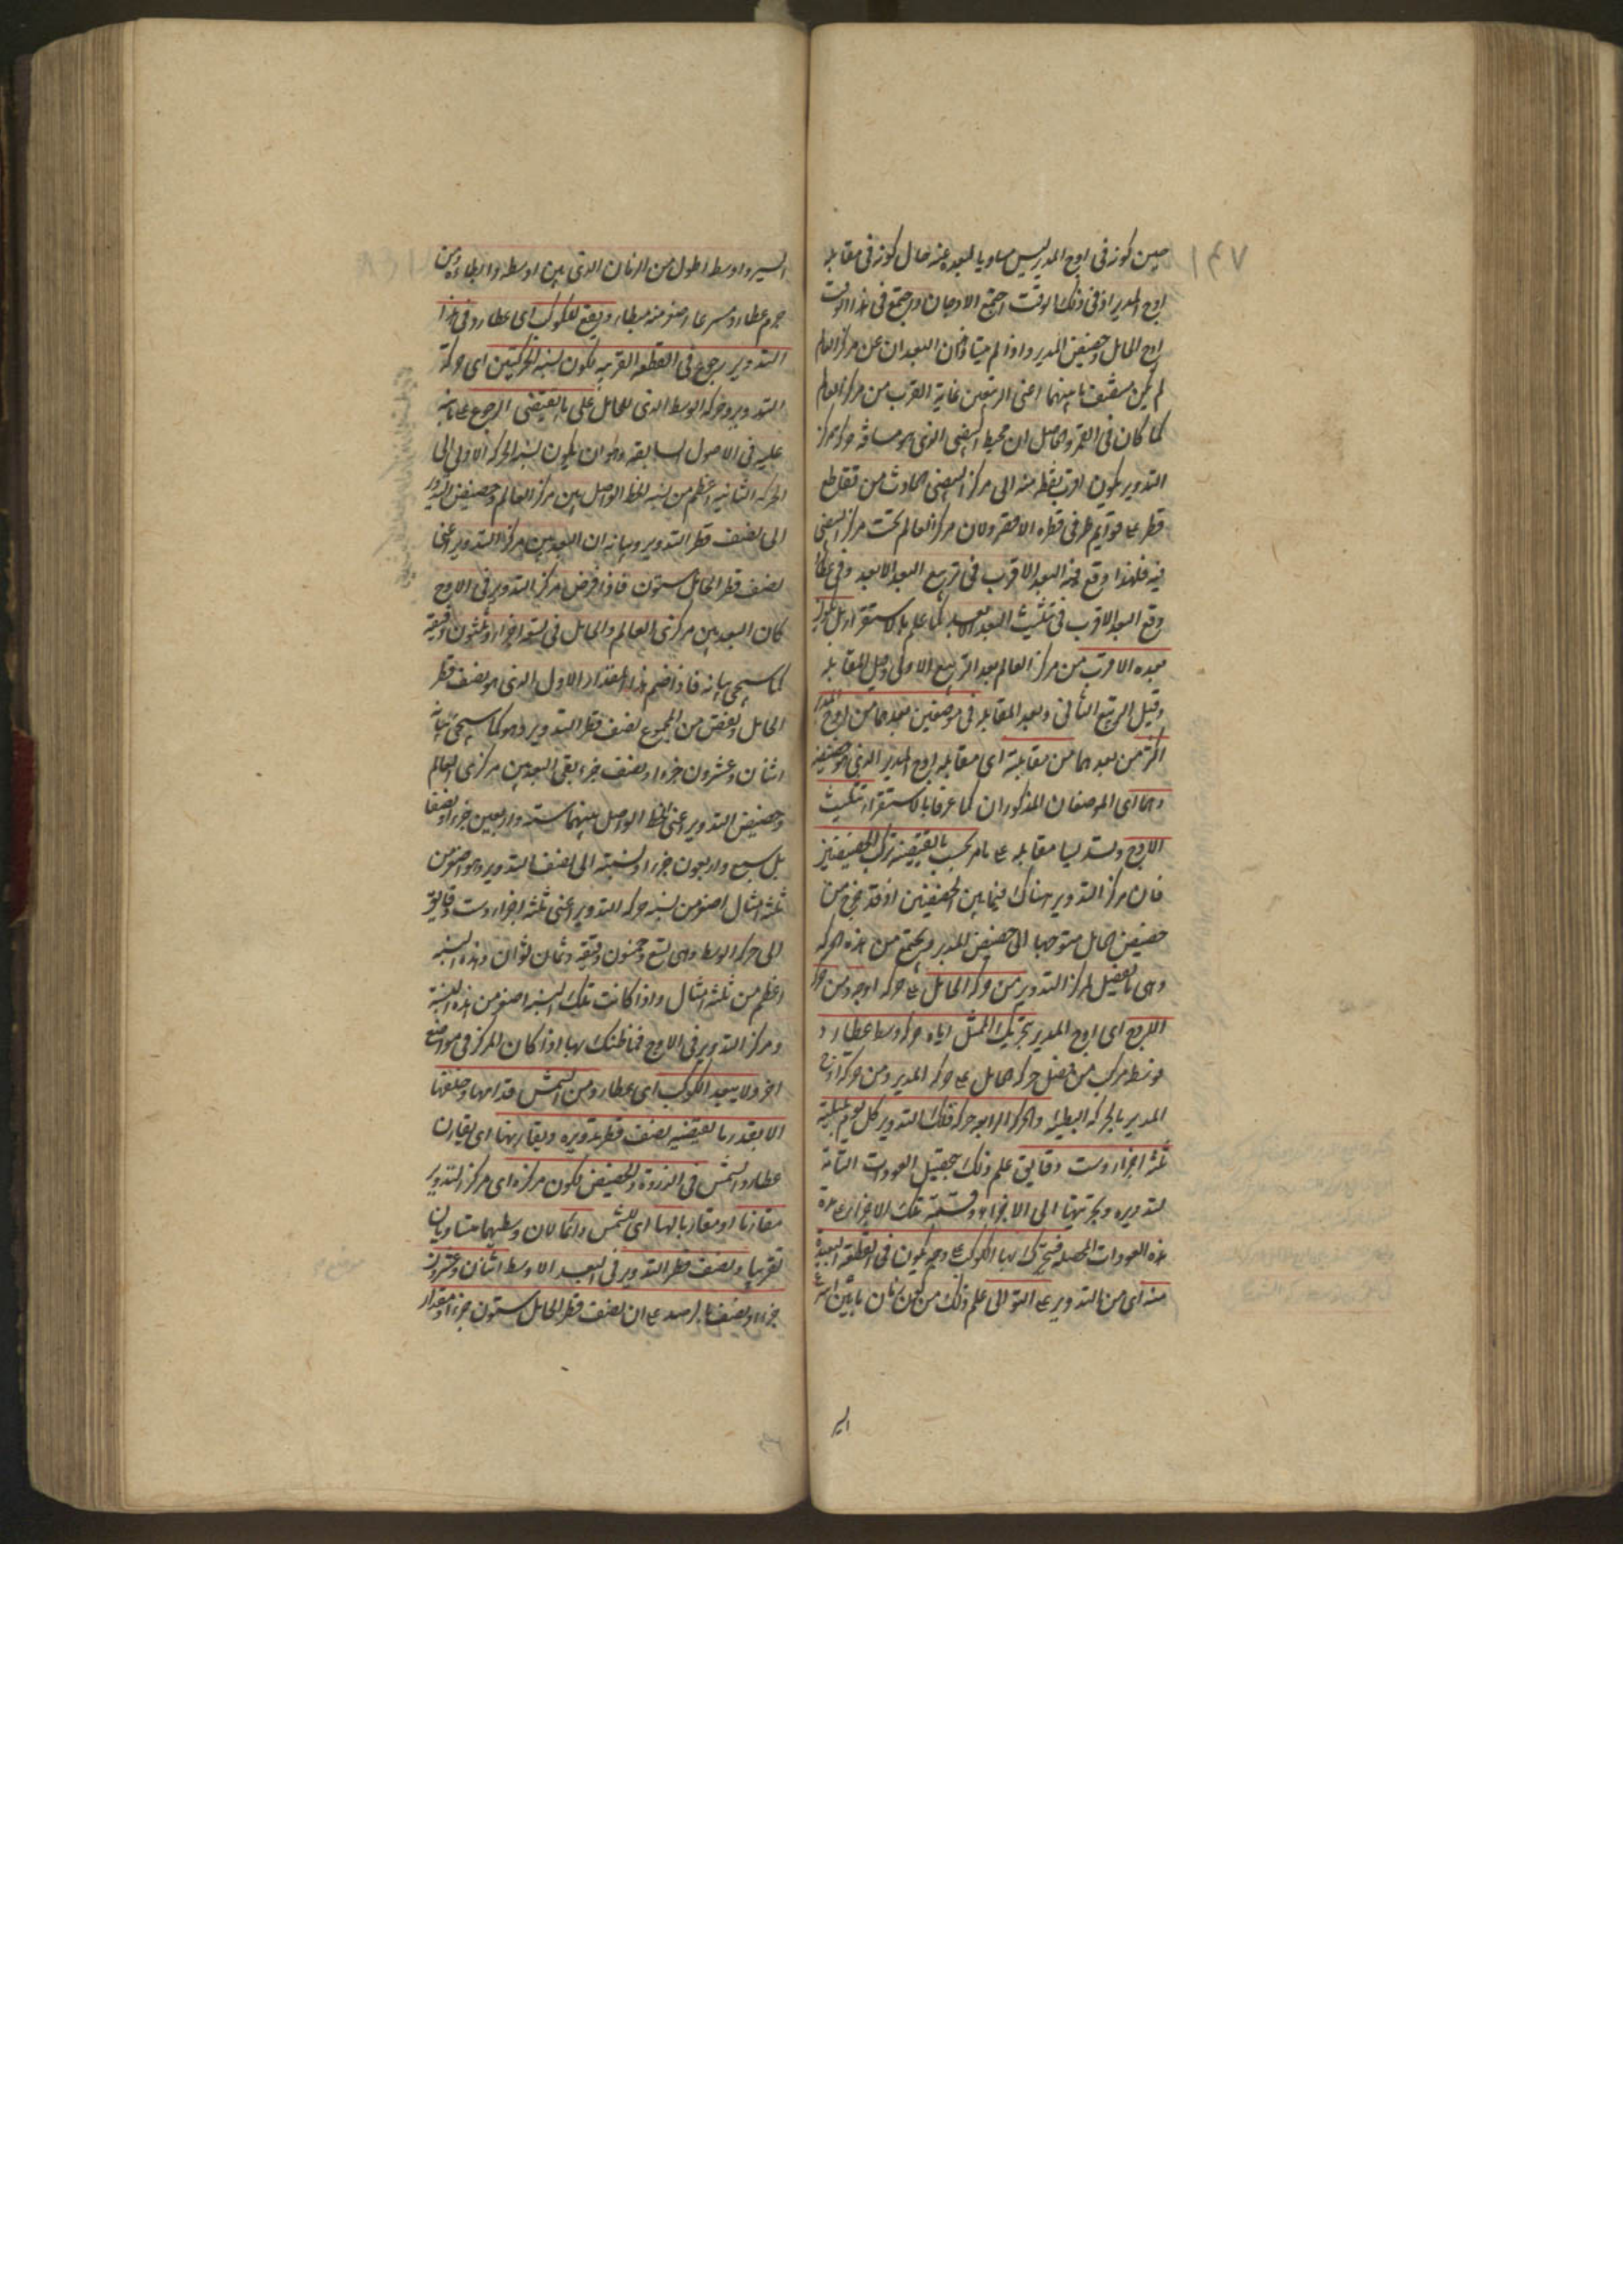 ١٤٧
حين كونه فى اوج المدير ليس مساويا لبعده عنه حال كونه فى مقابلة
اوج المدير اذ فى ذلك الوقت اجتمع الاوجان واجتمع فى هذا الوقت
اوج الحامل وحضيض المدير واذا لم يتساو البعدان عن مركز العالم
لم يكن منتصف ما بينهما اعنى الربعين غاية القرب من مركز العالم
كما كان فى القمر والحاصل ان محيط البيضى الذى هو مسافة حركة مركز
التدوير يكون اقرب نقطة منه الى مركز البيضى الحادث من تقاطع
قطريه على قوايم طرفى قطره الاقصر ولان مركز العالم تحت مركز البيضى
فيه فلهذا وقع فيه البعد الاقرب فى تربيع البعد الابعد وفى عطارد
وقع البعد الاقرب فى تثليث البعد الابعد كما علم بالاستقراء بل يكون
بعده الاقرب من مركز العالم بعد التربيع الاول وقبل المقابلة
وقبل التربيع الثانى وبعد المقابلة فى موضعين بعدهما من اوج المدير
اكثر من بعدهما من مقابلته اى مقابلة اوج المدير الذى هو حضيضه
وهما اى الموضعان المذكوران كما عرفا بالاستقراء تثليث
الاوج وتسديسا مقابله على ما مر بحسب ما يقتضيه تركب الحضيضين
فان مركز التدوير هناك فيما بين الحضيضين اذ قد خرج من
حضيض الحامل متوجها الى حضيض المدير ويجتمع من هذه الحركة
وهى ما يفضل لمركز التدوير من حركة الحامل على حركة اوجه ومن حركة
الاوج اى اوج المدير بتحريك الممثل اياه حركة وسط عطارد
فوسطه مركب من فضل حركة الحامل على حركة المدير ومن حركة اوج
المدير بالحركة البطيئة والحركة الرابعة حركة فلك التدوير كل يوم بليلته
ثلثة اجزاء وست دقايق علم ذلك بتحصيل العودات التامة
لتدويره وتجزيتها الى الاجزاء وقسمة تلك الاجزاء على مدة
هذه العودات المحصلة فيتحرك بها الكوكب على وجه يكون فى القطعة البعيدة
منه اى من التدوير على التوالى علم ذلك من كون زمان ما بين اسرع
السير
السير واوسطه اطول من الزمان الذى بين اوسطه وابطاءه ومن
جرم عطارد مسرعا اصغر منه مبطاء ويقع للكوكب اى عطارد فى هذا
التدوير رجوع فى القطعة القريبة لكون نسبة الحركتين اى حركة
التدوير وحركة الوسط الذى للحامل على ما يقتضى الرجوع على ما نبه
عليه فى الاصول السابقة وهو ان يكون نسبة الحركة الاولى الى
الحركة الثانية اعظم من نسبة الخط الواصل بين مركز العالم وحضيض التدوير
الى نصف قطر التدوير وبيانه ان البعد بين مركز التدوير اعنى
نصف قطر الحامل ستون فاذا فرض مركز التدوير فى الاوج
كان البعد بين مركزى العالم والحامل فى تسعة اجزاء وثلثون دقيقة
كما سيجئ بيانه فاذا ضم هذا المقدار الاول الذى هو نصف قطر
الحامل ونقص من المجموع نصف قطر التدوير وهو كما سيجئ بيانه
اثنان وعشرون جزءا ونصف جزء بقى البعد بين مركزى العالم
وحضيض التدوير اعنى الخط الواصل بينهما ستة واربعين جزءا ونصفا
بل سبع واربعون جزءا ونسبته الى نصف التدوير وهو اصغر من
ثلثة امثال اصغر من نسبة حركة التدوير اعنى ثلثة اجزاء وست دقايق
الى حركة الوسط وهى تسع وخمسون دقيقة وثمان ثوان وهذه النسبة
اعظم من ثلثة امثال واذا كانت تلك النسبة اصغر من هذه النسبة
ومركز التدوير فى الاوج فما ظنك بها اذا كان المركز فى مواضع
اخر ولا يبعد الكوكب اى عطارد من الشمس قدامها وخلفها
الا بقدر ما يقتضيه نصف قطر تدويره ويقارنها اى يقارن
عطارد الشمس فى الذروة والحضيض لكون مركزه اى مركز التدوير
مقارنا او مقاربا لها اى للشمس دائما لان وسطيهما متساويان
تقريبا ونصف قطر التدوير فى البعد الاوسط اثنان وعشرون
جزءا ونصف بالرصد على ان نصف قطر الحامل ستون جزءا ومقدار